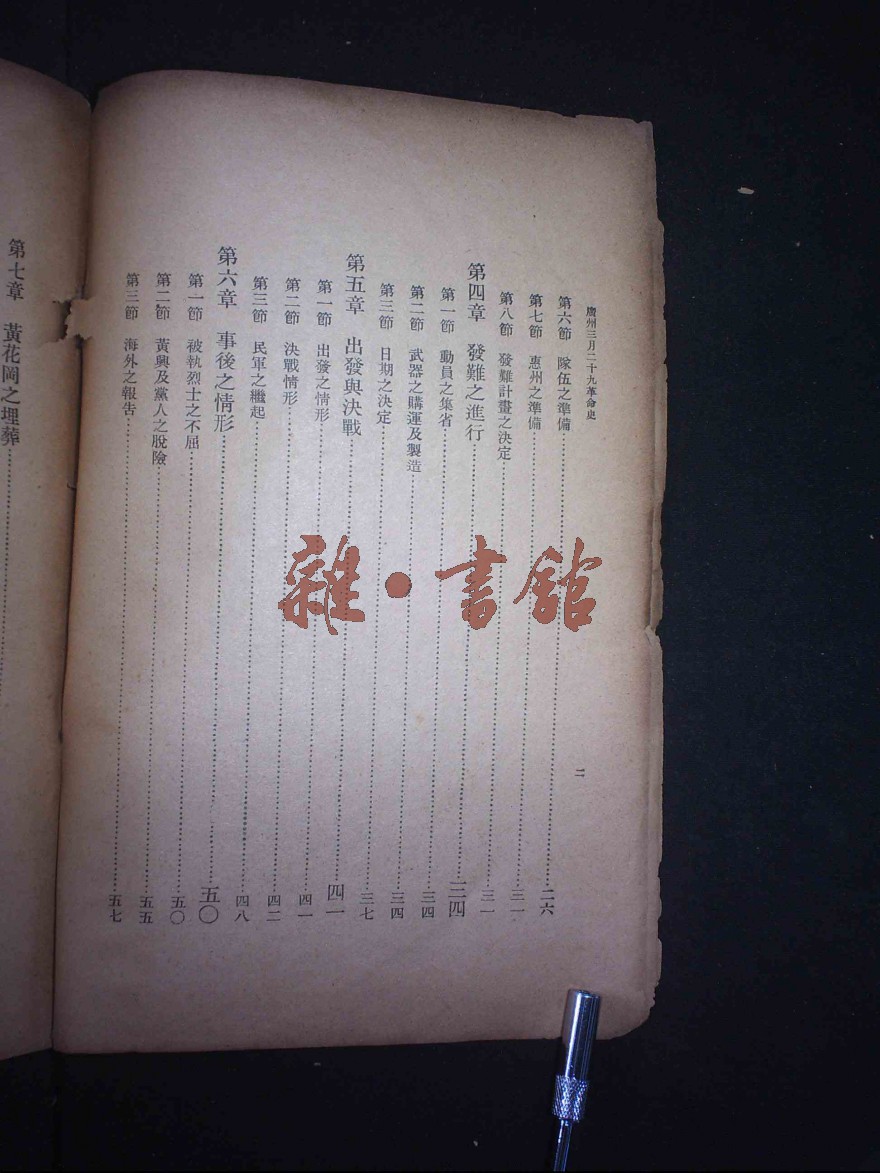 廣州三月二十九革命史
二
第六節 隊伍之準備 二六
第七節 惠州之準備 三一
第八節 發難計畫之決定 三一
第四章 發難之進行 三四
第一節 動員之集省 三四
第二節 武器之購運及製造 三四
第三節 日期之決定 三七
第五章 出發與決戰 四一
第一節 出發之情形 四一
第二節 決戰情形 四二
第三節 民軍之繼起 四八
第六章 事後之情形 五〇
第一節 被執烈士之不屈 五〇
第二節 黃興及黨人之脫險 五五
第三節 海外之報告 五七
第七章 黃花岡之埋葬
雜·書館